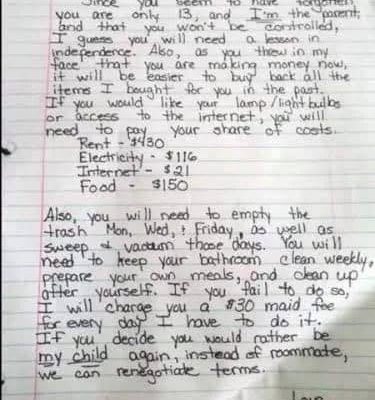 Since you seem to have forgotten
you are only 13, and I'm the parent,
and that you won't be controlled,
I guess you will need a lesson in
independence. Also, as you threw in my
face that you are making money now,
it will be easier to buy back all the
items I bought for you in the past.
If you would like your lamp/lightbulbs
or access to the internet, you will
need to pay your share of costs.
Rent - $430
Electricity - $116
Internet - $21
Food - $150
Also, you will need to empty the
trash Mon, Wed, & Friday, as well as
sweep & vacuum those days. You will
need to keep your bathroom clean weekly,
prepare your own meals, and clean up
after yourself. If you fail to do so,
I will charge you a $30 maid fee
for every day I have to do it.
If you decide you would rather be
my child again, instead of roommate,
we can renegotiate terms.
Love